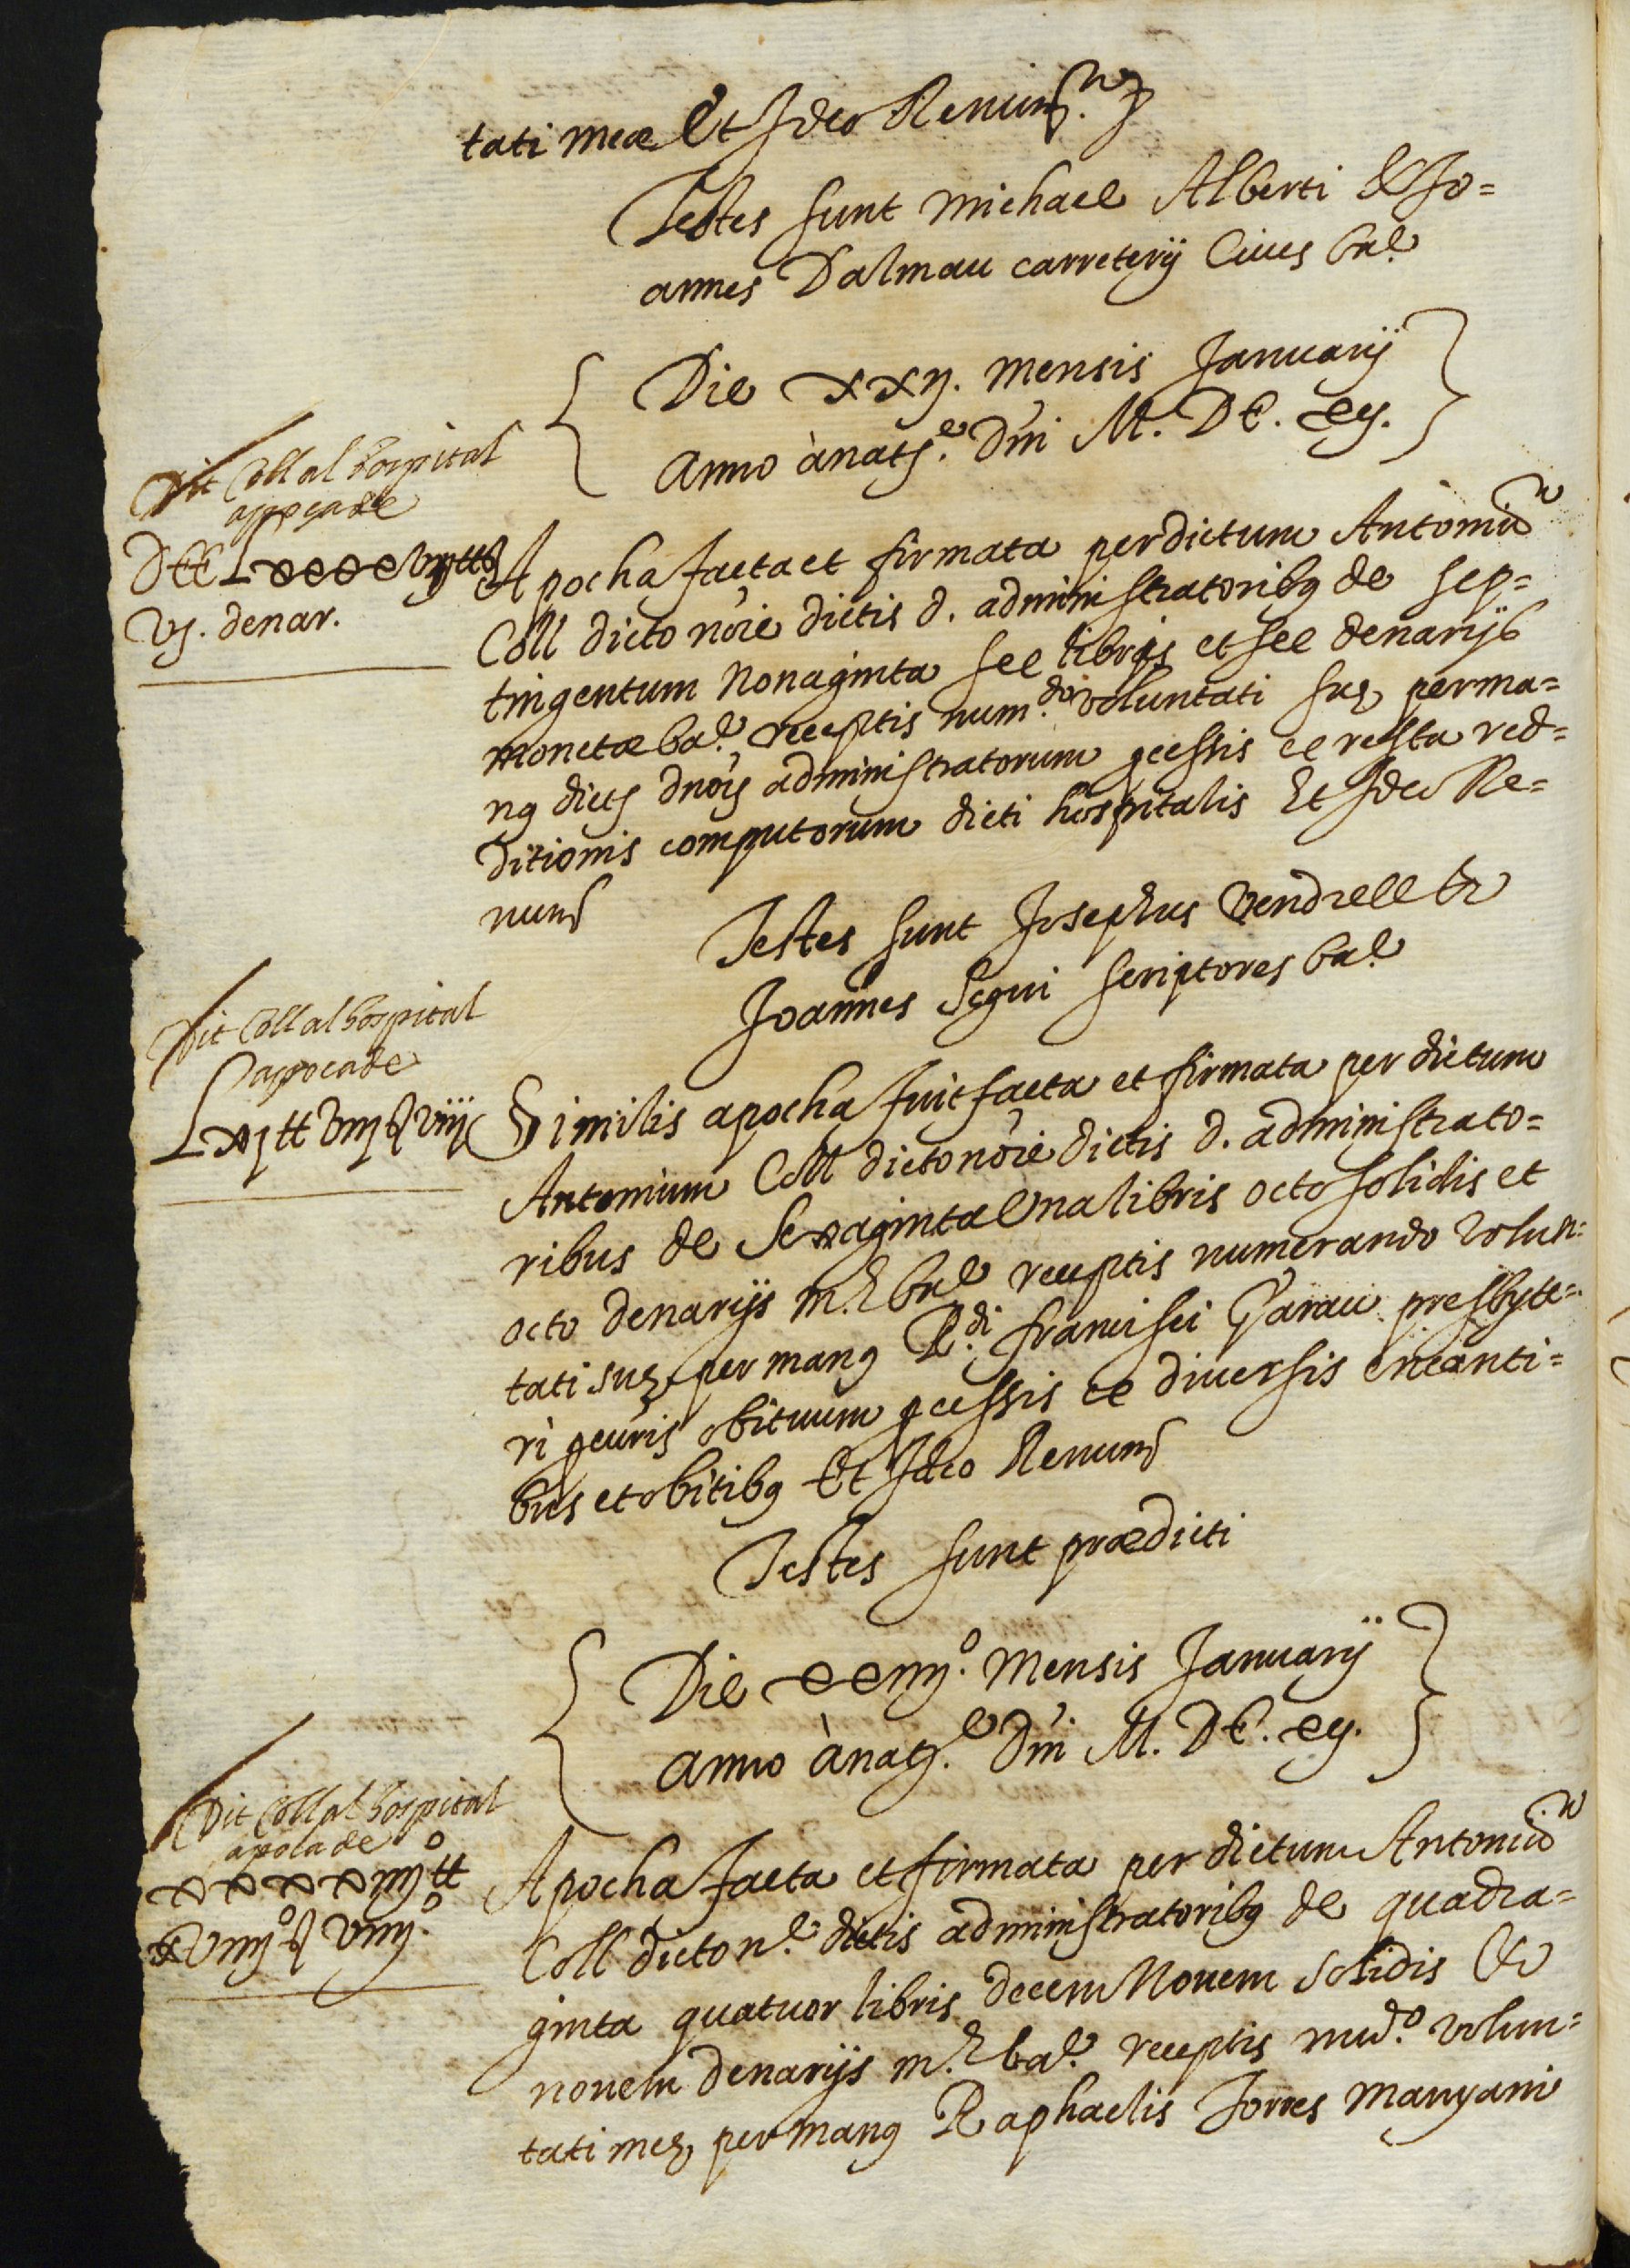 tati meæ Et Ideo Renun.
Testes sunt Michael Alberti & Jo=
annes Dalmau carreterij Cives bar.e
Die xxij. mensis Januarij
Anno ànat.e Dñi M. DC. xij.
Dit Coll al hospital
appoca de
DCCLxxxxvjtt
vj. denar.
Apocha facta et firmata per dictum Antoniũ
Coll dicto nõie dictis d. administratoribȝ de sep=
tingentum Nonaginta sex libris et sex denarijs
monetæ bar.e receptis num.do voluntati suę, per ma=
nȝ dictȝ dnõrȝ administratorum ꝓcessis ex resta red=
ditionis computorum dicti hospitalis Et Ideo Re=
nun
Testes sunt Josephus Vendrell &
Joannes Segui scriptores bar.e
Dit Coll al hospital
appoca de
Lxjtt viijſ viij
Similis apocha fuit facta et firmata per dictum
Antonium Coll dicto nõie dictis d. administrato=
ribus de Sexaginta Una libris octo solidis et
octo denarijs m.ę bar.e receptis numerando volun=
tati suę, per manȝ R.di francisci Garau presbyte=
ri ꝓcuris obituum ꝓcessis ex diversis encanti=
bus et obitibȝ Et Ideo Renun
Testes sunt prædicti
Die xxiiij.o Mensis Januarij
anno ànat.e Dñi M. DC. xij.
Dit Coll al hospital
apoca de
xxxxiiijtt
xviiijſ viiij.
Apocha facta et firmata per dictum Antoniũ
Coll dicto n.e dictis administratoribȝ de quadra=
ginta quatuor libris decem Novem solidis &
novem denarijs m.ę bar.e receptis nu.do volun=
tati meę, per manȝ Raphaelis Torres Manyani